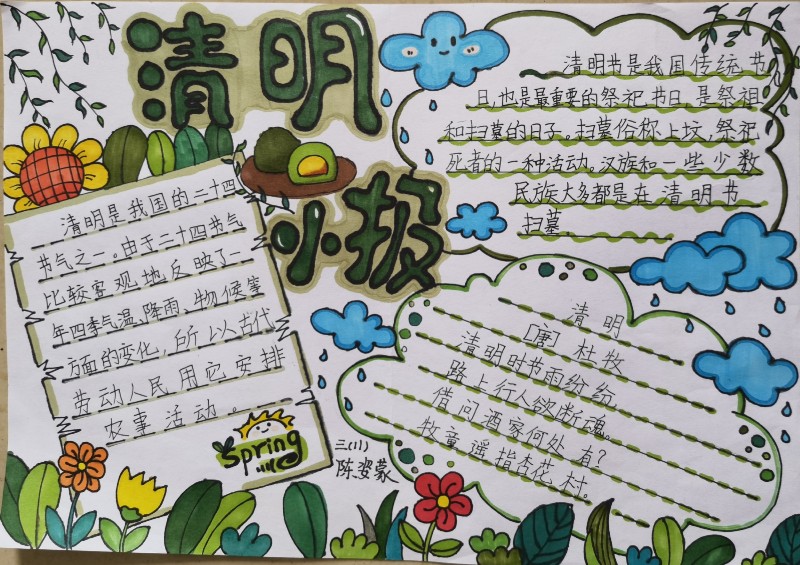 清明
小报
清明节是我国传统节
日,也是最重要的祭祀节日,是祭祖
和扫墓的日子。扫墓俗称上坟,祭祀
死者的一种活动。汉族和一些少数
民族大多都是在清明节
扫墓。
清明是我国的二十四
节气之一。由于二十四节气
比较客观地反映了一
年四季气温、降雨、物候等
方面的变化,所以古代
劳动人民用它安排
农事活动。
Spring
三(11)
陈姿蒙
清明
[唐]杜牧
清明时节雨纷纷,
路上行人欲断魂。
借问酒家何处有?
牧童遥指杏花村。